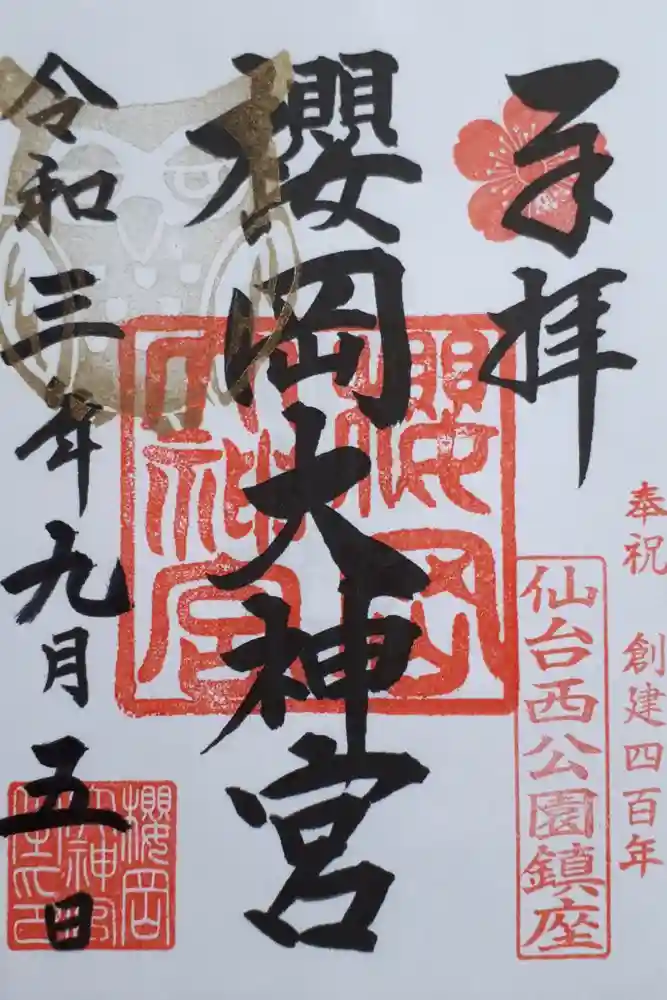 奉拝
奉祝 創建四百年
仙台西公園鎮座
櫻岡大神宮
櫻岡
大神宮
令和三年九月五日
櫻岡